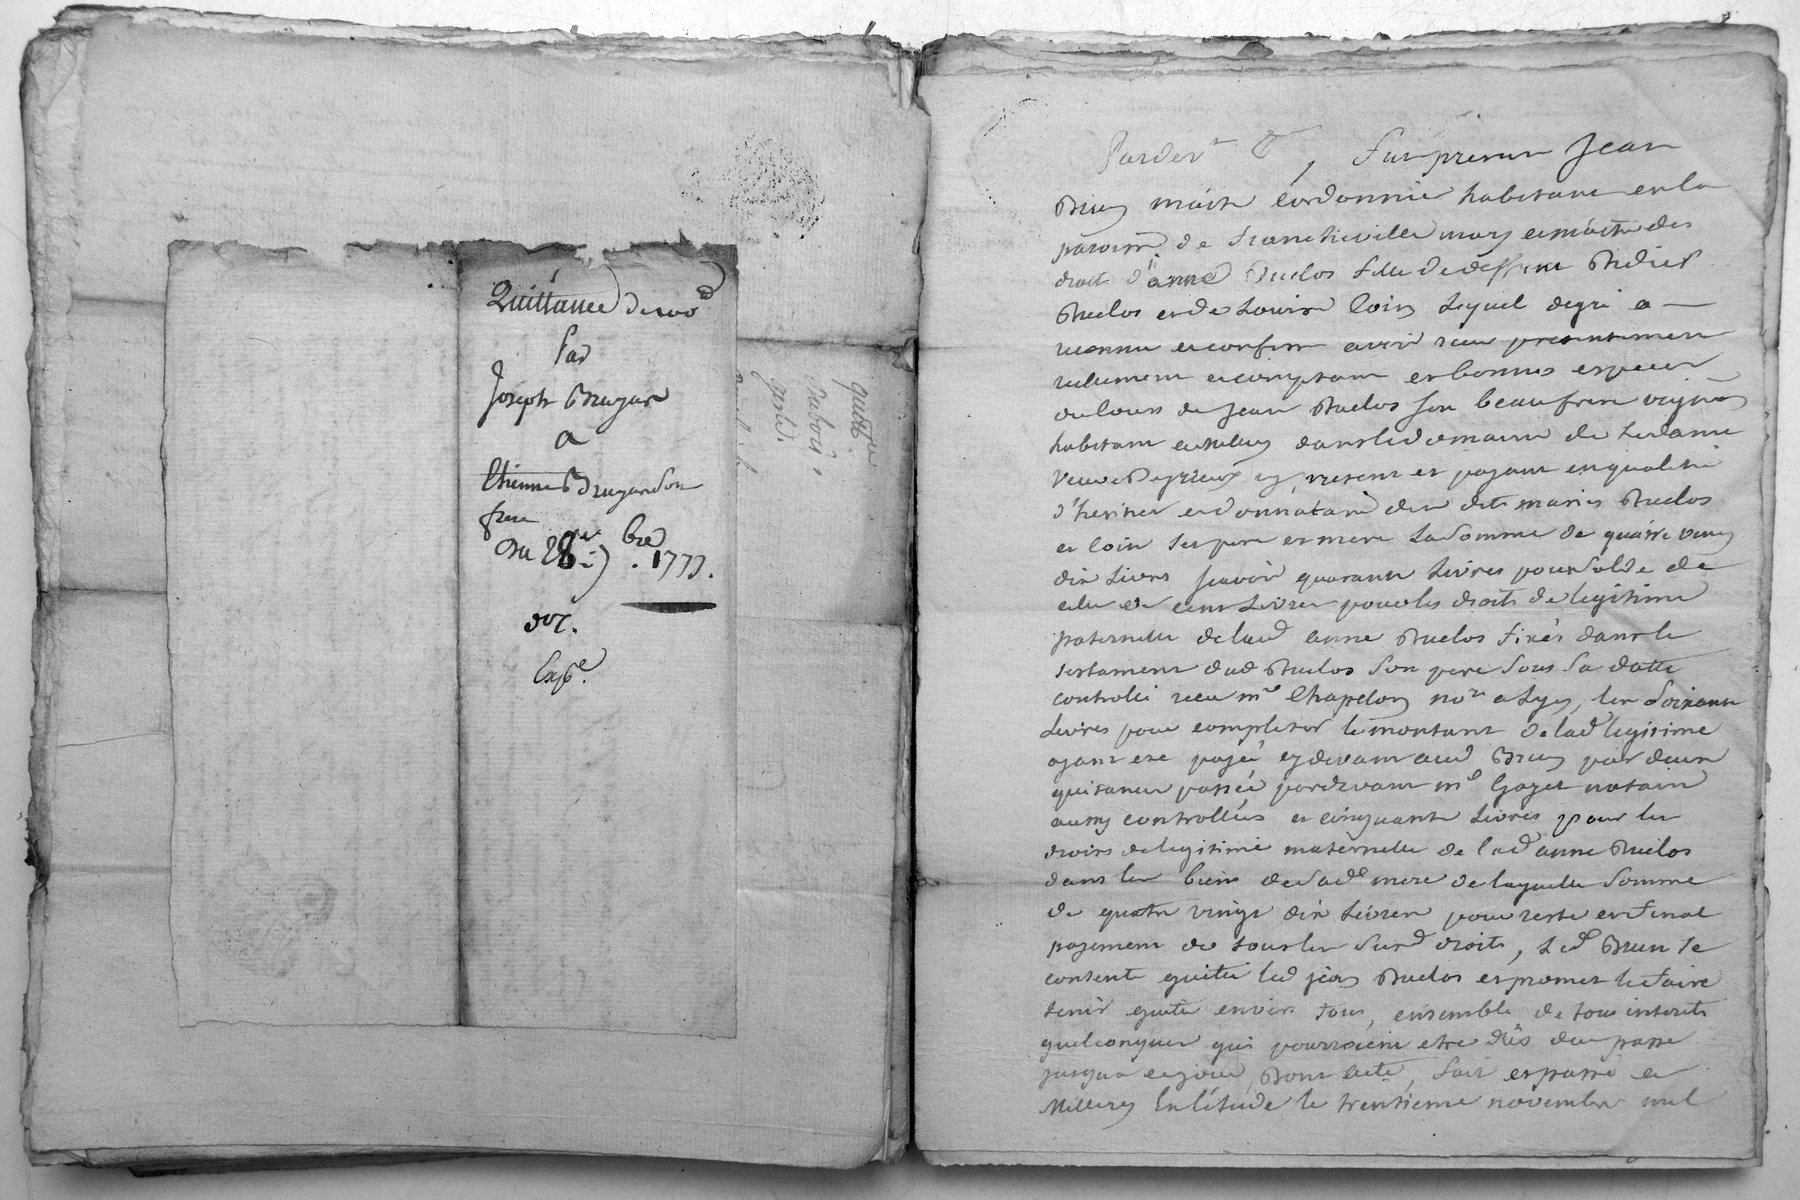 Quittance de 100#
Par
Joseph Brugar
a
Etienne Brugar son
frere
Du 28e 7bre 1777.
Exp.e
quitt.ce
Dubois
Pardev.t fut present Jean
Brun maitre Cordonnier habitant en la
paroisse de francheville mary et maitre des
droits d'anne Duclos fille de deffunt Didier
Duclos et de Louise Coin lequel de gré a
reconnu et confessé avoir recu presentement
reelement et comptant en bonnes especes
ou cours de jean Duclos son beau frere vigneron
habitant dans le domaine de la dame
veuve present et payant en qualité
d'heritier et donnataire des dits mariés Duclos
et Coin ses pere et mere la somme de quatre vingt
dix livres scavoir quarante livres pour solde de
celle de cent livres pour les droits de legitime
paternelle de lad anne Duclos fixés dans le
testament dud Duclos son pere sous sa datte
controllé recu me Chapelon nore a Lyon, les soixante
livres pour completer le montant de lad legitime
ayant eté payé cy devant aud Brun par deux
quitances passées pardevant me Gayet notaire
aussy controllées et cinquante livres pour les
droits de legitime maternelle de lad anne Duclos
dans les biens de sade mere de laquelle somme
de quatre vingt dix livres pour reste et final
payement de tous les susd droits, led Brun se
contente quitte led jean Duclos et promet le faire
tenir quitte envers tous, ensemble de tous interets
quelconques qui pourroient etre dûs du passé
jusqu'a ce jour, Dont acte, fait et passé a
Millery En l'étude le trentieme novembre mil